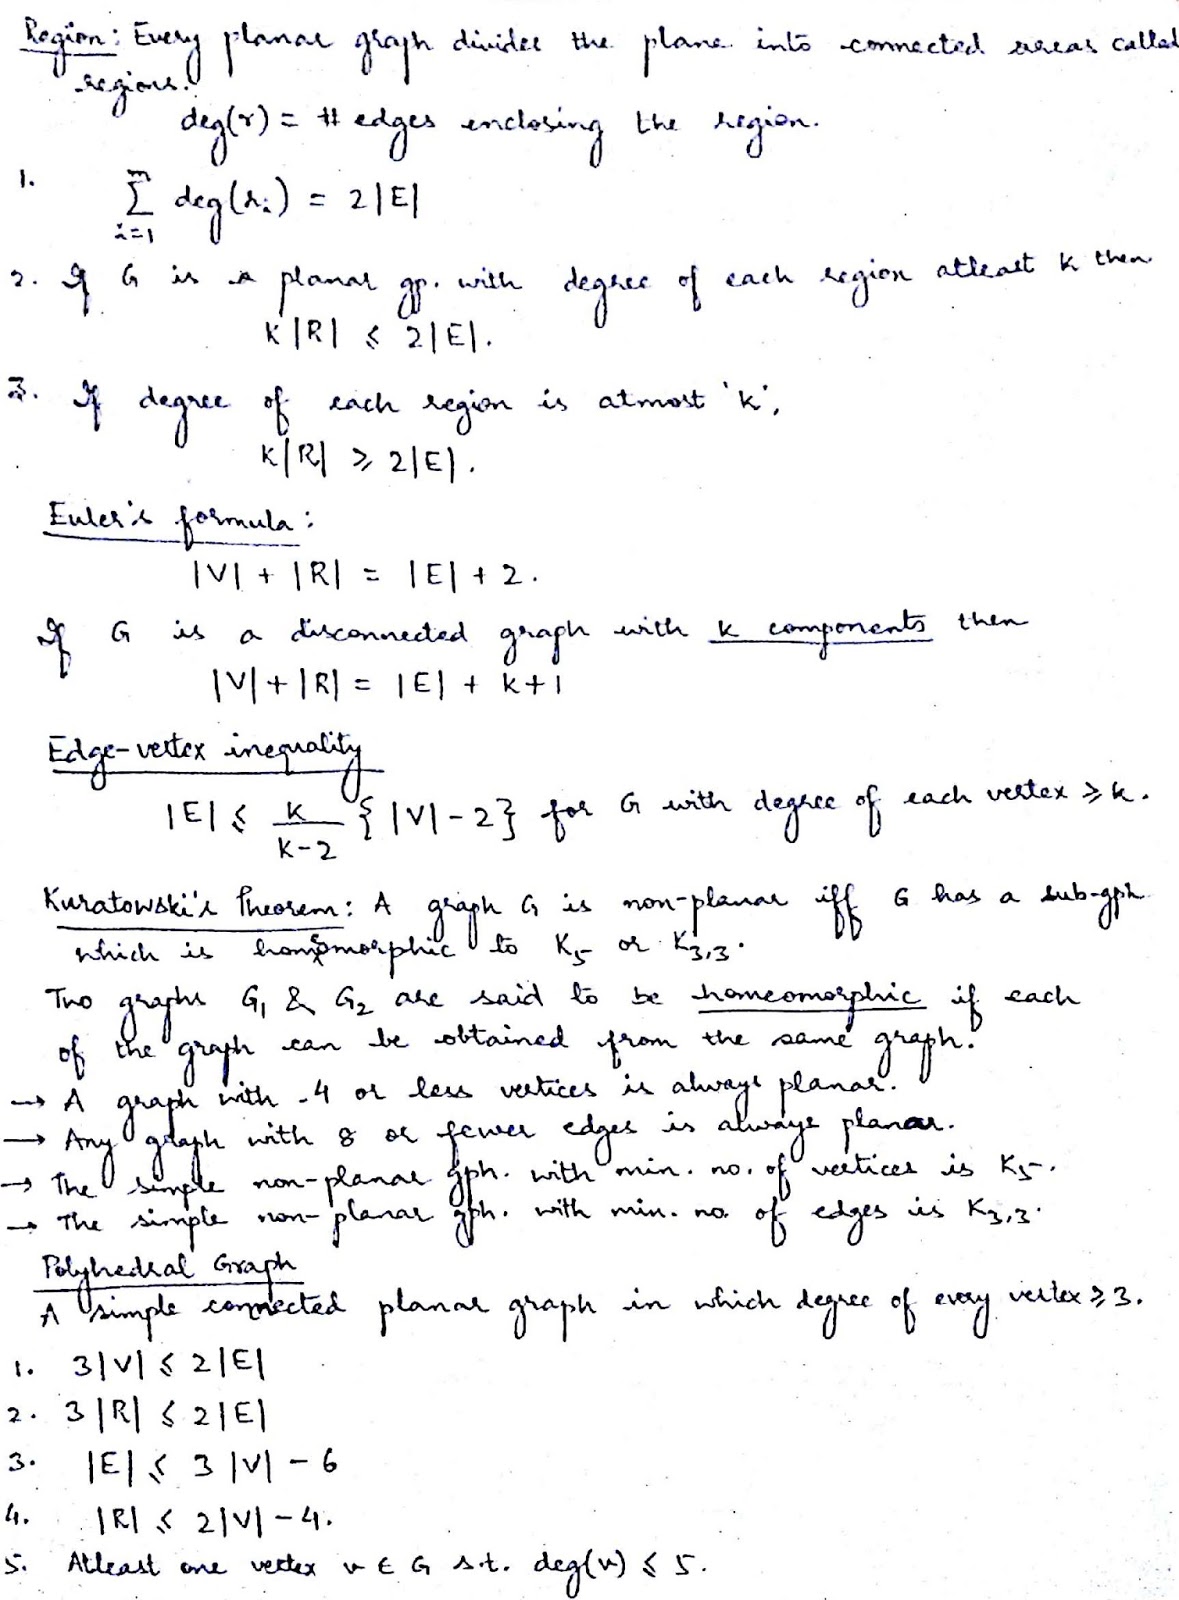 Region: Every planar graph divides the plane into connected areas called
regions.
deg(r) = # edges enclosing the region.
1. m Σ i=1 deg(ri) = 2|E|
2. If G is a planar gp. with degree of each region atleast k then
K|R| ≤ 2|E|.
3. If degree of each region is atmost 'k',
K|R| ≥ 2|E|.
Euler's formula:
|V| + |R| = |E| + 2.
If G is a disconnected graph with k components then
|V| + |R| = |E| + k+1
Edge-vertex inequality
|E| ≤ K/(K-2) {|V|-2} for G with degree of each vertex ≥ k.
Kuratowski's Theorem: A graph G is non-planar iff G has a sub-gph
which is homeomorphic to K5 or K3,3.
Two graphs G1 & G2 are said to be homeomorphic if each
of the graph can be obtained from the same graph.
→ A graph with 4 or less vertices is always planar.
→ Any graph with 8 or fewer edges is always planar.
→ The simple non-planar gph. with min. no. of vertices is K5.
→ The simple non-planar gph. with min. no. of edges is K3,3.
Polyhedral Graph
A simple connected planar graph in which degree of every vertex ≥ 3.
1. 3|V| ≤ 2|E|
2. 3|R| ≤ 2|E|
3. |E| ≤ 3|V| - 6
4. |R| ≤ 2|V| - 4.
5. Atleast one vertex v ∈ G s.t. deg(v) ≤ 5.